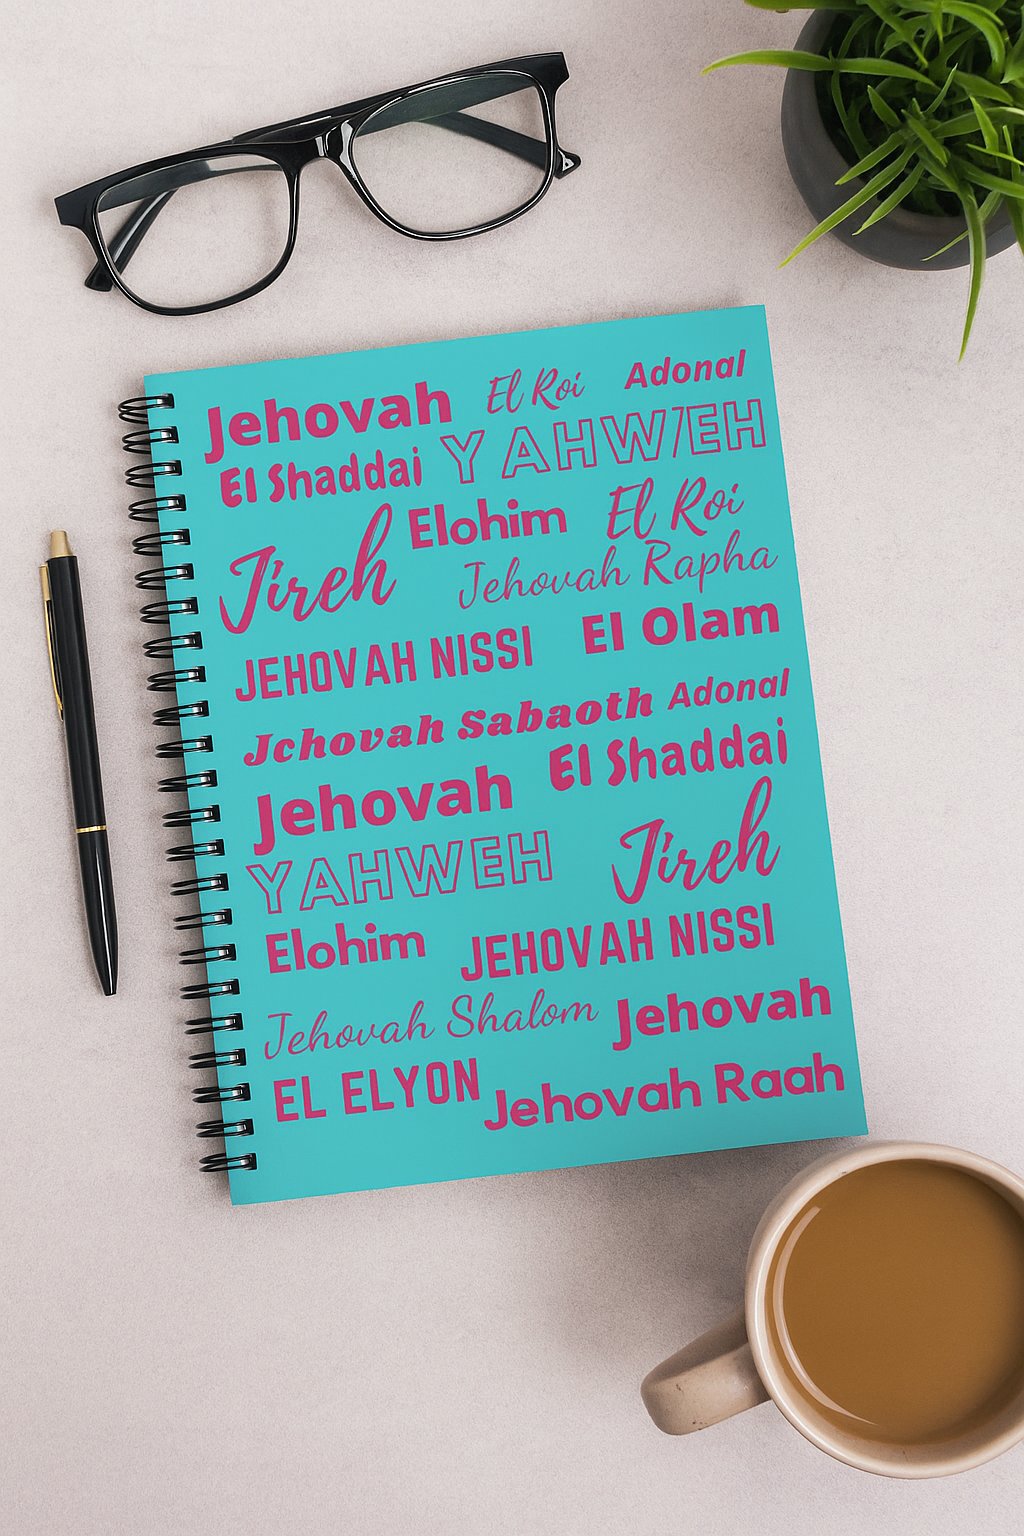 Jehovah El Roi Adonal
El Shaddai YAHWEH
Jireh Elohim El Roi
Jehovah Rapha
JEHOVAH NISSI El Olam
Jchovah Sabaoth Adonal
Jehovah El Shaddai
YAHWEH Jireh
Elohim JEHOVAH NISSI
Jehovah Shalom Jehovah
EL ELYON Jehovah Raah